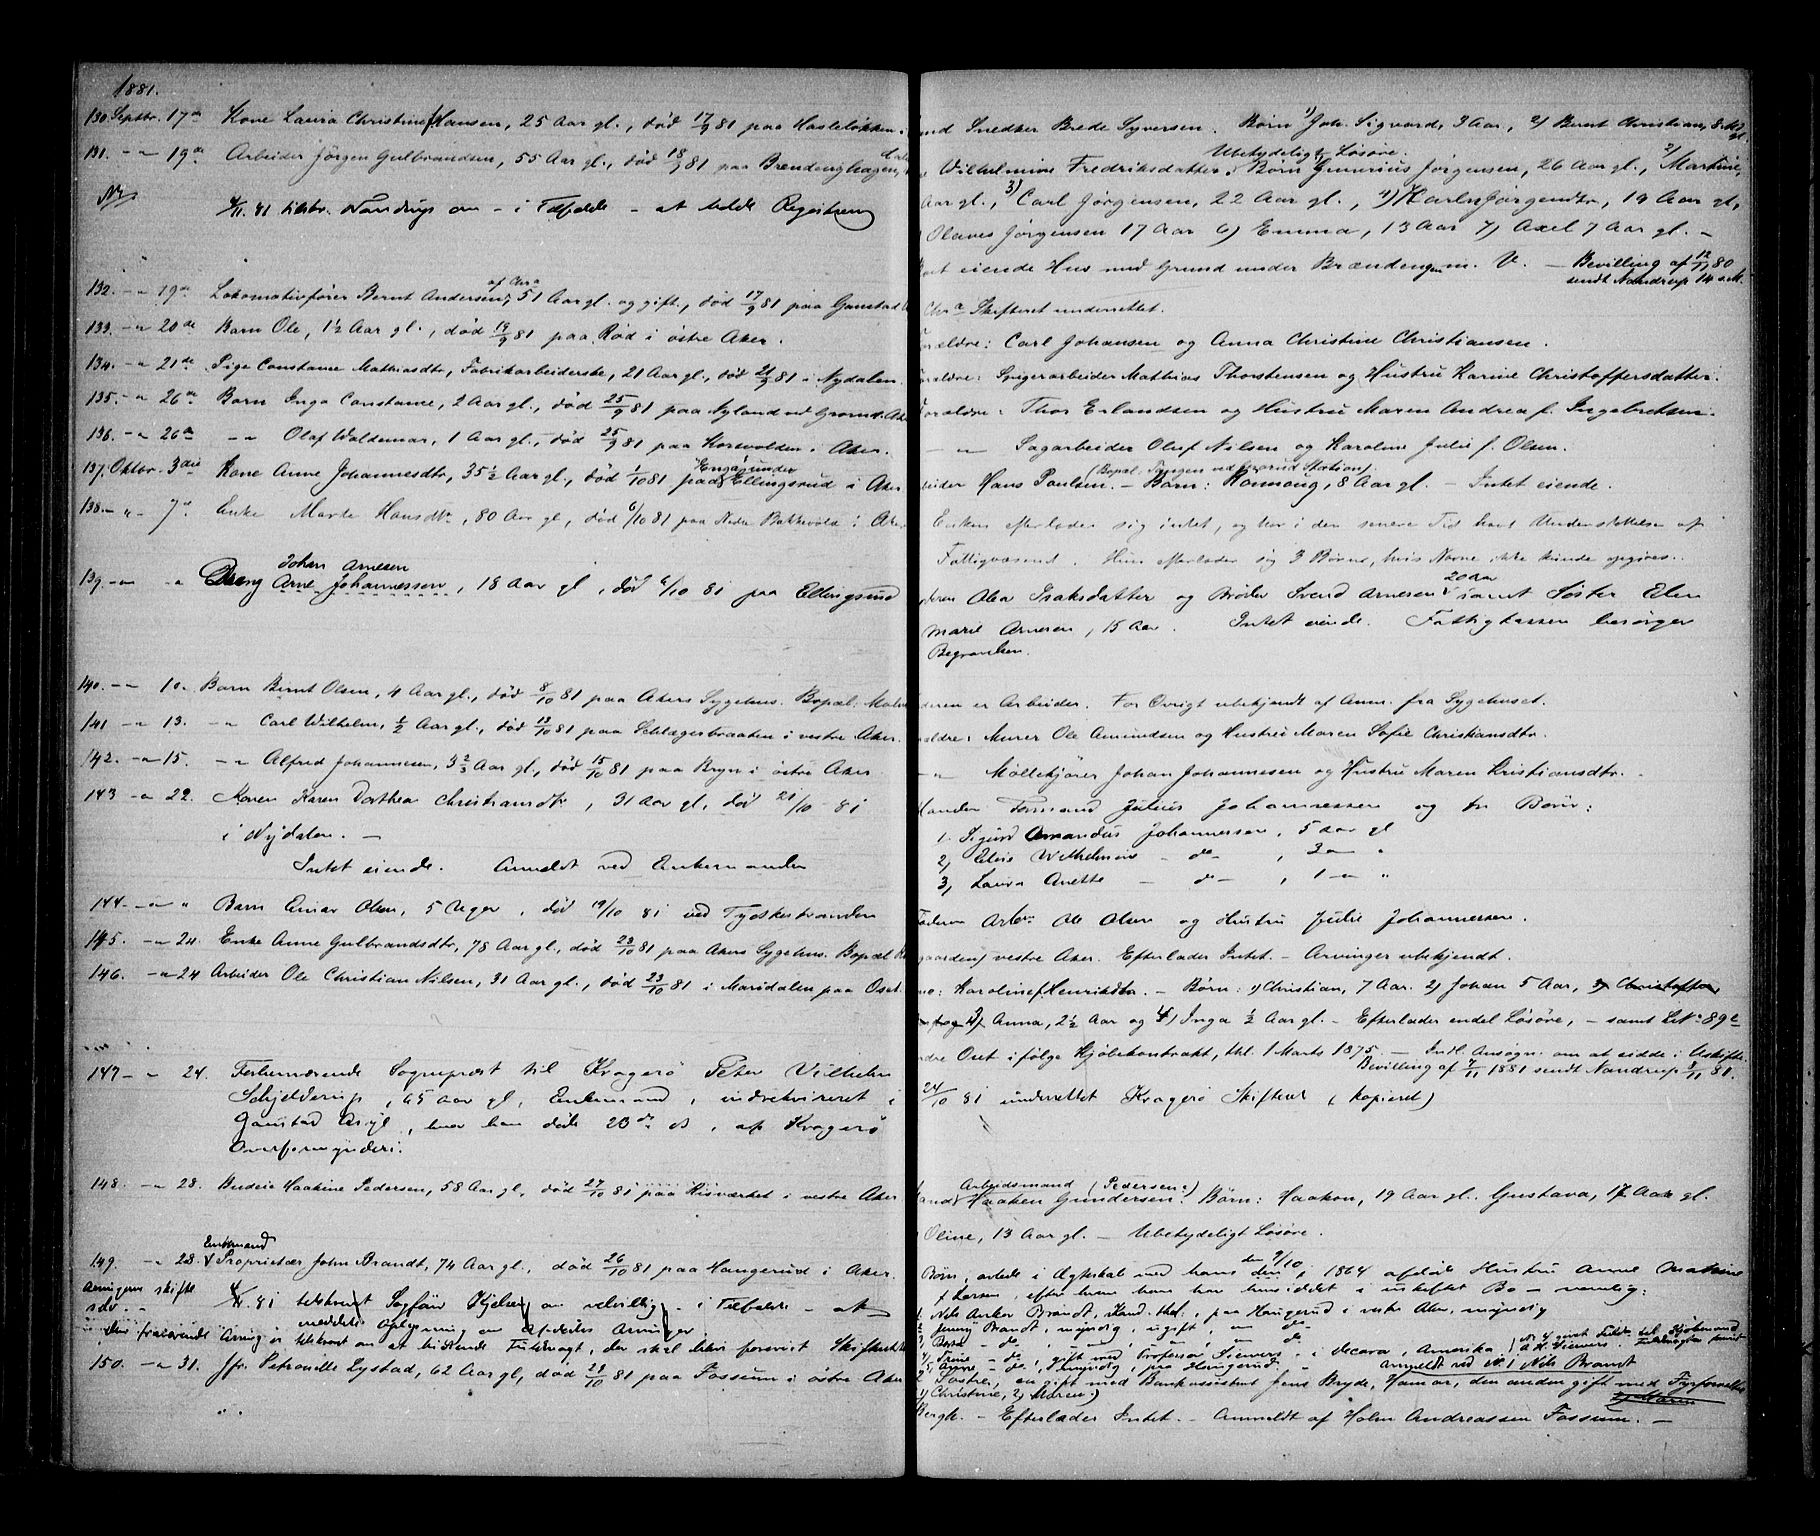 1881.
130. Septbr. 17de Kone Laura Christine f. Hansen, 25 Aar gl., død 17/9 81 paa Hasleløkken.
131. -"- 19de Arbeider Jørgen Gulbrandsen, 55 Aar gl., død 18/9 81 paa Brændenghagen,
4/11 81 tilskr. Nandrup om - i Tilfælde - at holde Registrering
132. -"- 19de Lokomotivfører Bernt Andersen, af Chra 51 Aar gl. og gift, død 17/9 81 paa Gaustad
133. -"- 20de Barn Ole, 1½ Aar gl., død 19/9 81 paa Rød i østre Aker.
134. -"- 21de Pige Constance Mathisdtr, Fabrikarbeiderske, 21 Aar gl., død 21/9 81 i Nydalen.
135. -"- 26de Barn Inga Constance, 2 Aar gl., død 25/9 81 paa Nyland ved Grorud. Aker
136. -"- 26de -"- Olaf Waldemar, 1 Aar gl., død 25/9 81 paa Korsvolden i Aker.
137. Oktbr. 3die Kone Anne Johannesdtr, 35½ Aar gl., død 1/10 81 paa Enga under Ellingsrud i Aker
138. -"- 7de Enke Marte Hansdtr, 80 Aar gl., død 6/10 81 paa Nedre Bakkevold i Aker
Johan Arnesen
139. -"- " Dreng Arne Johannessen, 18 Aar gl, død 6/10 81 paa Ellingsrud
140. -"- 10. Barn Bernt Olsen, 4 Aar gl., død 8/10 81 paa Akers Sygehus. Bopæl:
141 -"- 13. -"- Carl Wilhelm, ½ Aar gl., død 13/10 81 paa Schlægersbraaten i vestre Aker.
142. -"- 15. -"- Alfred Johannesen, 3⅔ Aar gl., død 15/10 81 paa Bryn i østre Aker.
143 -"- 22. Konen Karen Dorthea Christiansdtr, 31 Aar gl, død 21/10 81
i Nydalen. —
Intet eiende. Anmeldt ved Enkemanden
144. -"- " Barn Einar Olsen, 5 Uger, død 19/10 81 ved Tydskestranden
145. -"- 24. Enke Anne Gulbrandsdtr, 78 Aar gl., død 23/10 81 paa Akers Sygehus. Bopæl
146. -"- 24 Arbeider Ole Christian Nilsen, 31 Aar gl., død 23/10 81 i Maridalen paa Oset.
147 -"- 24. Forhenværende Sogneprest til Kragerø Peter Vilhelm
Schjelderup, 65 Aar gl, Enkemand, indrekvireret i
Gaustad Asyl, hvor han døde 23de ds, af Kragerø
Overformynderi.
148. -"- 28. Budeie Haakine Pedersen, 58 Aar gl, død 27/10 81 paa Risværket i vestre Aker
Enkemand
149. -"- 28. Proprietær John Brandt, 74 Aar gl., død 26/10 81 paa Haugerud i Aker.
Arvingerne skifte
selv. - 4/11 81 tilskrevet Sagfører Kjelsen om velvillig - i Tilfælde - at
meddele Oplysning om Afdødes Arvinger
Den fraværende Arving er tilskrevet om at tilsende Fuldmagt, der skal blive forevist Skifteretten
150. -"- 31. Jfr. Petronelle Lystad, 62 Aar gl, død 29/10 81 paa Fossum i østre Aker
Mand Snedker Brede Syversen. Børn 1) Joh. Sigvard, 3 Aar, 2) Bernt Christian, 8 Md gl.
Ubetydeligt Løsøre.
Wilhelmine Fredriksdatter. Børn Gunerius Jørgensen, 26 Aar gl., 2) Martine,
Aar gl., 3) Carl Jørgensen, 22 Aar gl., 4) Karen Jørgensdtr, 19 Aar gl,
Olaves Jørgensen 17 Aar 6) Emma, 13 Aar 7) Axel 7 Aar gl. —
eiende Hus med Grund under Brændengen. V. — Bevilling af 12/11 80
sendt Nandrup 14 s.M.
Chra Skifteret underrettet.
Forældre: Carl Johansen og Anna Christine Christiansen.
Forældre: Spigerarbeider Mathias Thorstensen og Hustru Karine Christoffersdatter.
Forældre: Thor Erlandsen og Hustru Maren Andrea f. Ingebretsen.
-"- Sagarbeider Oluf Nilsen og Karoline Julie f. Olsen.
(Bopæl. Tangen ved Grorud Station).
Arbeider Hans Paulsen. - Barn: Ronnaug, 8 Aar gl. - Intet eiende.
Enken efterlader sig intet, og har i den senere Tid havt Understøttelse af
Fattigvæsenet. Hun efterlader sig 3 Børn, hvis Navne ikke kunde opgives.
Moderen Olea Isaksdatter og Broder Svend Arnesen 20 Aar samt Søster Elen
Marie Arnesen, 15 Aar. Intet eiende. Fattigkassen besørger
Begravelsen.
Faderen er Arbeider. For Øvrigt ubekjendt af Anm. fra Sygehuset.
Forældre: Murer Ole Amundsen og Hustru Maren Sofie Christiansdtr.
-"- Møllekjører Johan Johannesen og Hustru Maren Kristiansdtr.
Manden Formand Julius Johannessen og tre Børn:
1. Sigurd Amandus Johannessen, 5 Aar gl
2, Elise Wilhelmine - do - , 3 " "
3, Laura Anette - do - , 1 " "
Faderen Arbr. Ole Olsen og Hustru Julie Johannessen.
vestre Aker. Efterlader Intet. - Arvinger ubekjendt.
Karoline f. Henriksdtr. - Børn: 1) Christian, 7 Aar. 2) Johan 5 Aar, 3) Christoffer
3 Anna, 2½ Aar og 4) Inga ½ Aar gl. - Efterlader endel Løsøre, - samt L.No 89c
Oset ifølge Kjøbekontrakt, thl. 1 Marts 1875. - Indl. Ansøgn. om at sidde i Uskifte.
Bevilling af 7/11 1881 sendt Nandrup 8/11 81.
24/10 81 underrettet Kragerø Skifteret (kopieret)
Arbeidsmand (Pedersen)
Mand Haaken Gundersen. Børn: Haakon, 19 Aar gl. Gustava, 17 Aar gl.
Oline, 13 Aar gl. - Ubetydeligt Løsøre.
Børn, avlede i Ægteskab med hans den 9/10 1864 afdøde Hustru Anne Mathine
f. Larsen, efter hvem han har hensiddet i uskiftet Bo - nemlig:
1, Nils Anker Brandt, Kand. theol., paa Haugerud i vestre Aker, myndig
2, Jenny Brandt, myndig, ugift, - do
3, Berta - do - " - do
4, Trine - do, gift med Professor Sievers, i Decora, Amerika.
5, Anne - do, myndig, paa Haugerud - anmeldt ved No. 1 Nils Brandt
2 Søstre, en gift med Bankassistent Jens Bryde, Hamar, den anden gift med Fyrforvalter
1) Christine, 2) Maren.) 2) Maren
Bergh. - Efterlader Intet. - Anmeldt af Holm Andreassen Fossum. —